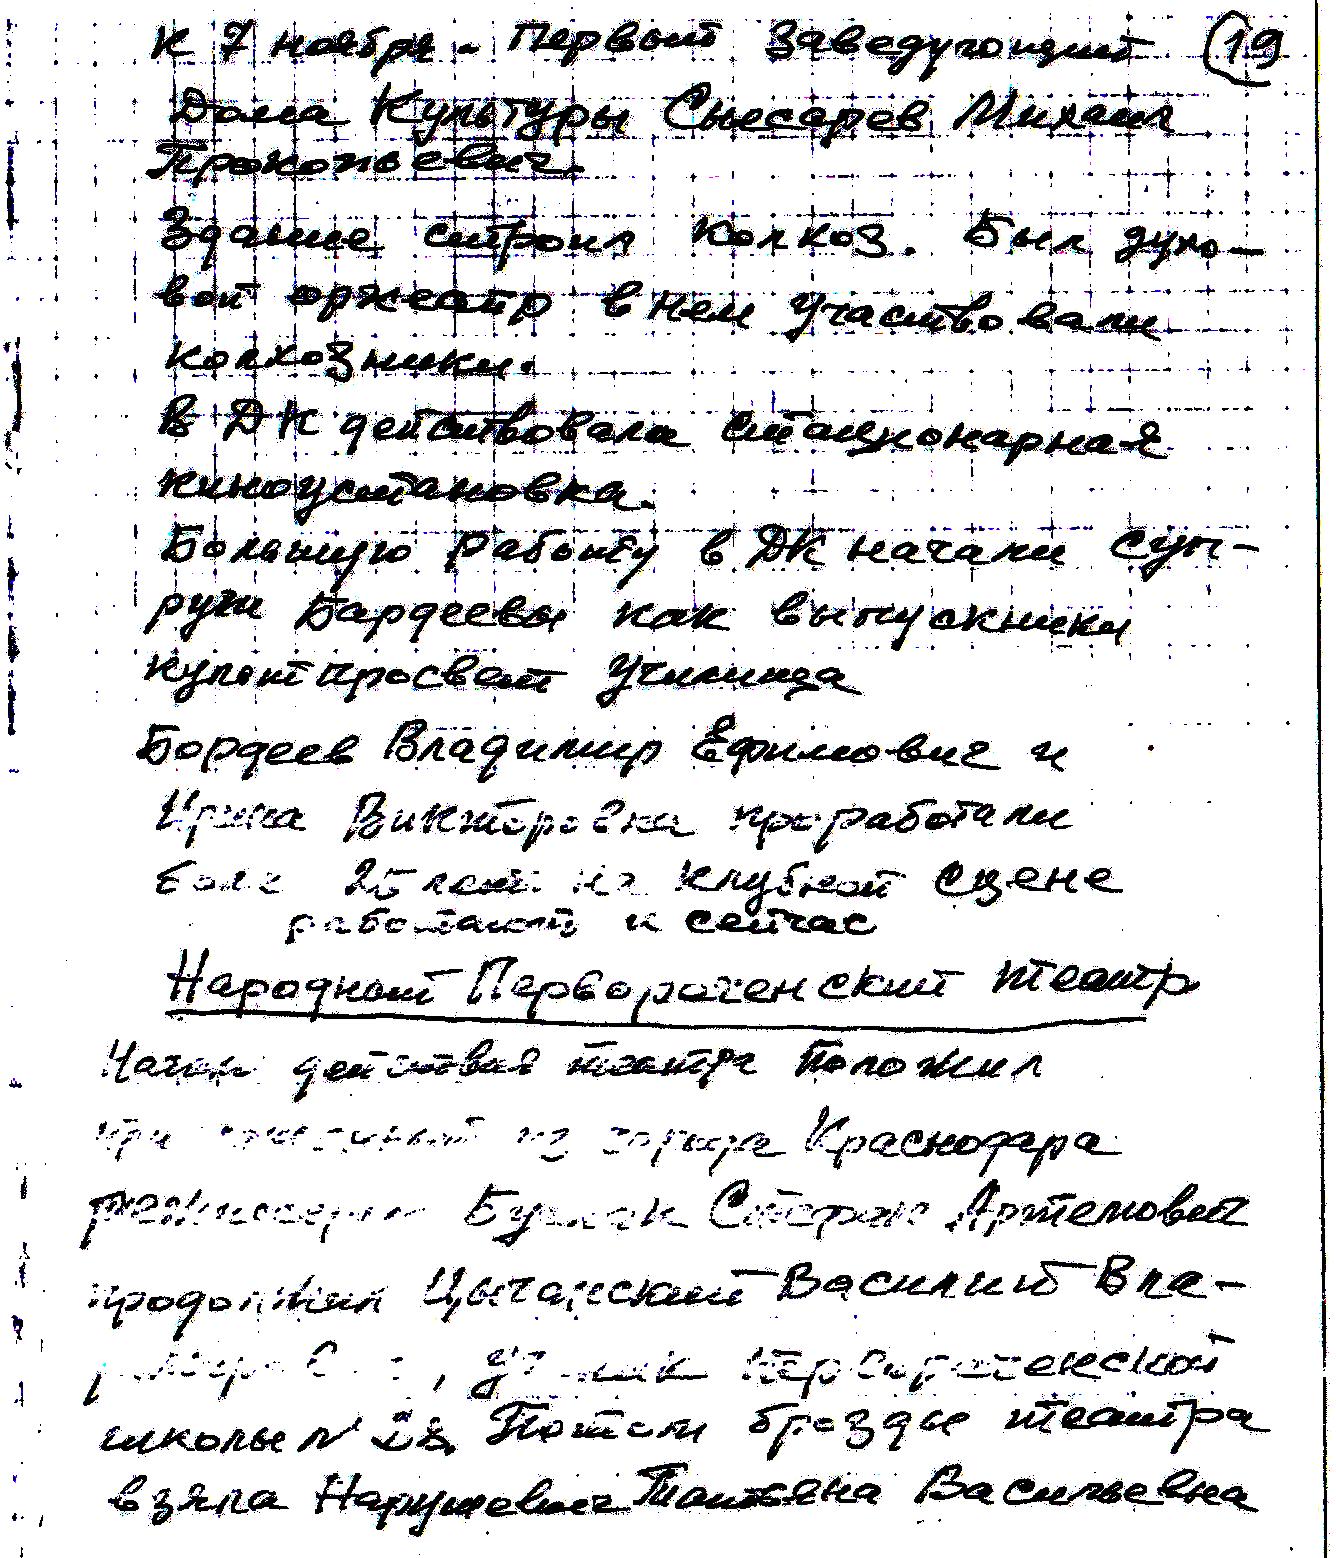 к 7 ноября - Первый Заведующий 19
Дома Культуры Слесарев Михаил
Прокопьевич.
Здание строил колхоз. Был духо-
вой оркестр в нем участвовали
колхозники.
В ДК действовала стационарная
киноустановка.
Большую работу в ДК начали суп-
руги Бардеевы как выпускники
культпросвет училища
Бордеев Владимир Ефимович и
Ирина Викторовна проработали
боле 25 лет на клубной сцене
работают и сейчас
Народный Первореченский театр
Начало действия театра Положил
из города Краснодара
Степан Артемович
продолжил Василий Вла-
Первореченской
школы № Потом брозды театра
взяла Нарушевич Татьяна Васильевна